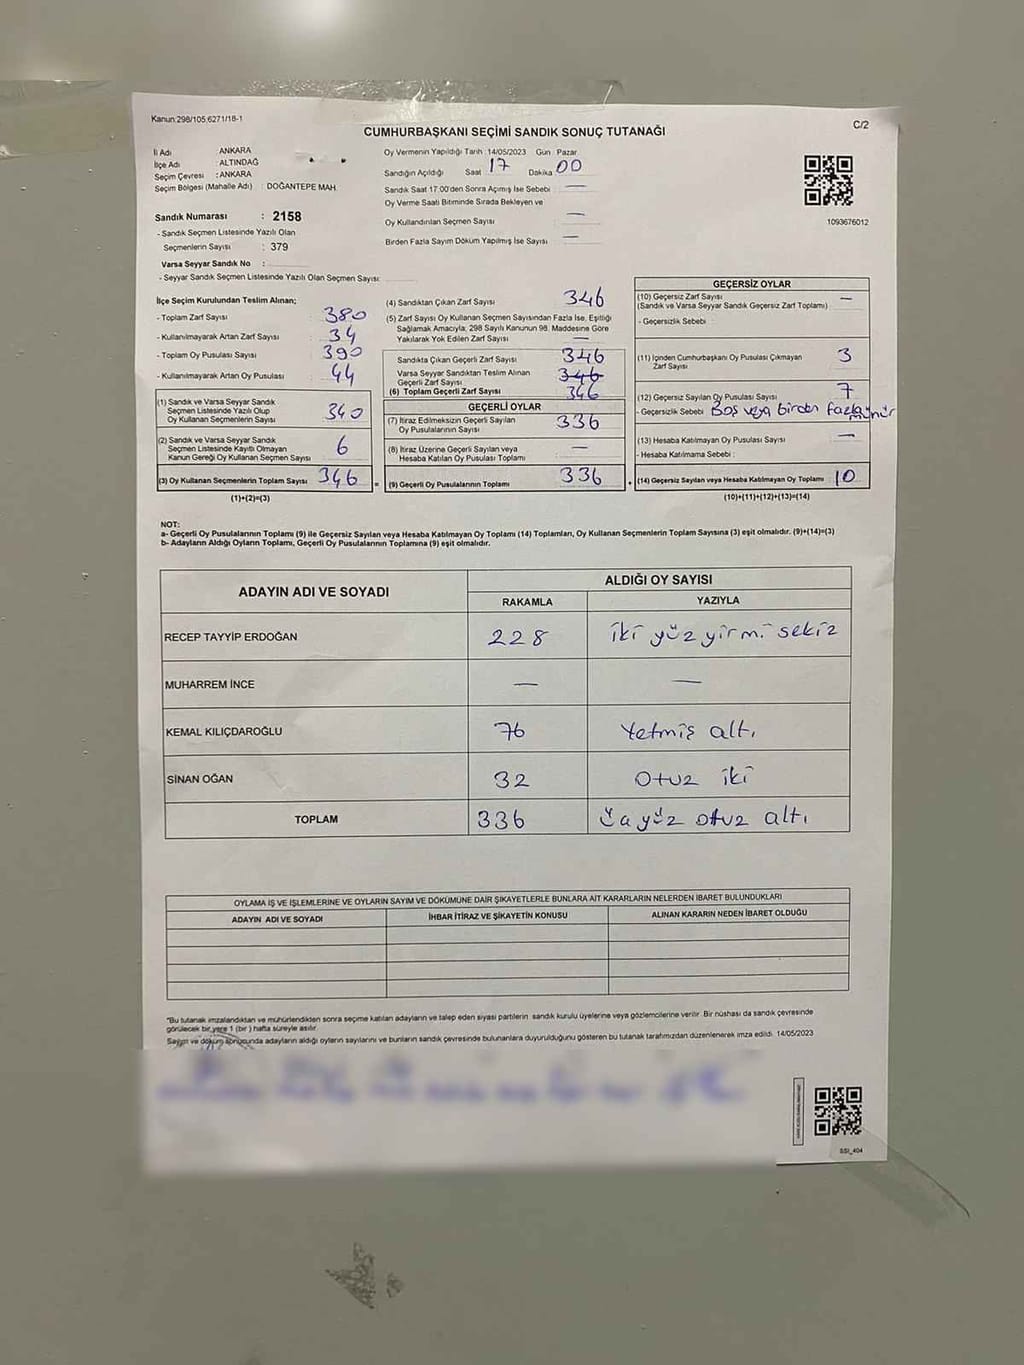 Kanun:298/105;6271/18-1
C/2
CUMHURBAŞKANI SEÇİMİ SANDIK SONUÇ TUTANAĞI
İl Adı : ANKARA
İlçe Adı : ALTINDAĞ
Seçim Çevresi : ANKARA
Seçim Bölgesi (Mahalle Adı) : DOĞANTEPE MAH.
Sandık Numarası : 2158
- Sandık Seçmen Listesinde Yazılı Olan
Seçmenlerin Sayısı : 379
Varsa Seyyar Sandık No :
- Seyyar Sandık Seçmen Listesinde Yazılı Olan Seçmen Sayısı:
Oy Vermenin Yapıldığı Tarih :14/05/2023 Gün : Pazar
Sandığın Açıldığı Saat 17 Dakika 00
Sandık Saat 17:00'den Sonra Açımış İse Sebebi : —
Oy Verme Saati Bitiminde Sırada Bekleyen ve
Oy Kullandırılan Seçmen Sayısı : —
Birden Fazla Sayım Döküm Yapılmış İse Sayısı : —
1093676012
İlçe Seçim Kurulundan Teslim Alınan;
- Toplam Zarf Sayısı : 380
- Kullanılmayarak Artan Zarf Sayısı : 34
- Toplam Oy Pusulası Sayısı : 390
- Kullanılmayarak Artan Oy Pusulası : 44
(1) Sandık ve Varsa Seyyar Sandık
Seçmen Listesinde Yazılı Olup
Oy Kullanan Seçmenlerin Sayısı 340
(2) Sandık ve Varsa Seyyar Sandık
Seçmen Listesinde Kayıtlı Olmayan
Kanun Gereği Oy Kullanan Seçmen Sayısı 6
(3) Oy Kullanan Seçmenlerin Toplam Sayısı 346
(1)+(2)=(3)
(4) Sandıktan Çıkan Zarf Sayısı 346
(5) Zarf Sayısı Oy Kullanan Seçmen Sayısından Fazla İse, Eşitliği
Sağlamak Amacıyla; 298 Sayılı Kanunun 98. Maddesine Göre
Yakılarak Yok Edilen Zarf Sayısı : —
Sandıkta Çıkan Geçerli Zarf Sayısı 346
Varsa Seyyar Sandıktan Teslim Alınan
Geçerli Zarf Sayısı 346
(6) Toplam Geçerli Zarf Sayısı 346
GEÇERLİ OYLAR
(7) İtiraz Edilmeksizin Geçerli Sayılan
Oy Pusulalarının Sayısı 336
(8) İtiraz Üzerine Geçerli Sayılan veya
Hesaba Katılan Oy Pusulası Toplamı —
= (9) Geçerli Oy Pusulalarının Toplamı 336
GEÇERSİZ OYLAR
(10) Geçersiz Zarf Sayısı —
(Sandık ve Varsa Seyyar Sandık Geçersiz Zarf Toplamı)
- Geçersizlik Sebebi :
(11) İçinden Cumhurbaşkanı Oy Pusulası Çıkmayan
Zarf Sayısı 3
(12) Geçersiz Sayılan Oy Pusulası Sayısı 7
- Geçersizlik Sebebi : Boş veya birden fazla mühür
(13) Hesaba Katılmayan Oy Pusulası Sayısı —
- Hesaba Katılmama Sebebi :
+ (14) Geçersiz Sayılan veya Hesaba Katılmayan Oy Toplamı 10
(10)+(11)+(12)+(13)=(14)
NOT:
a- Geçerli Oy Pusulalarının Toplamı (9) ile Geçersiz Sayılan veya Hesaba Katılmayan Oy Toplamı (14) Toplamları, Oy Kullanan Seçmenlerin Toplam Sayısına (3) eşit olmalıdır. (9)+(14)=(3)
b- Adayların Aldığı Oyların Toplamı, Geçerli Oy Pusulalarının Toplamına (9) eşit olmalıdır.
ADAYIN ADI VE SOYADI
ALDIĞI OY SAYISI
RAKAMLA YAZIYLA
RECEP TAYYİP ERDOĞAN 228 iki yüz yirmi sekiz
MUHARREM İNCE — —
KEMAL KILIÇDAROĞLU 76 Yetmiş altı
SİNAN OĞAN 32 Otuz iki
TOPLAM 336 üç yüz otuz altı
OYLAMA İŞ VE İŞLEMLERİNE VE OYLARIN SAYIM VE DÖKÜMÜNE DAİR ŞİKAYETLERLE BUNLARA AİT KARARLARIN NELERDEN İBARET BULUNDUKLARI
ADAYIN ADI VE SOYADI İHBAR İTİRAZ VE ŞİKAYETİN KONUSU ALINAN KARARIN NEDEN İBARET OLDUĞU
*Bu tutanak imzalandıktan ve mühürlendikten sonra seçime katılan adayların ve talep eden siyasi partilerin sandık kurulu üyelerine veya gözlemcilerine verilir. Bir nüshası da sandık çevresinde
görülecek bir yere 1 (bir) hafta süreyle asılır.
Sayım ve döküm sonucunda adayların aldığı oyların sayılarını ve bunların sandık çevresinde bulunanlara duyurulduğunu gösteren bu tutanak tarafımızdan düzenlenerek imza edildi. 14/05/2023
SSI_404